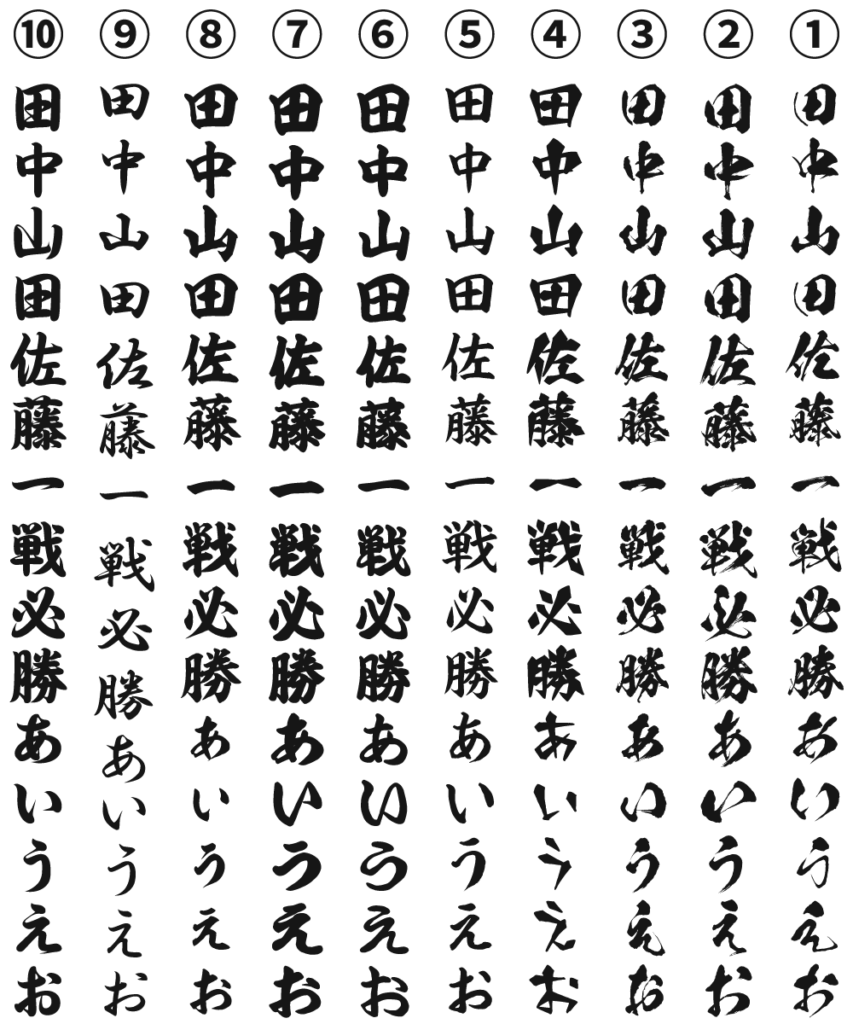 ①田中山田佐藤一戦必勝あいうえお
②田中山田佐藤一戦必勝あいうえお
③田中山田佐藤一戦必勝あいうえお
④田中山田佐藤一戦必勝あいうえお
⑤田中山田佐藤一戦必勝あいうえお
⑥田中山田佐藤一戦必勝あいうえお
⑦田中山田佐藤一戦必勝あいうえお
⑧田中山田佐藤一戦必勝あいうえお
⑨田中山田佐藤一戦必勝あいうえお
⑩田中山田佐藤一戦必勝あいうえお